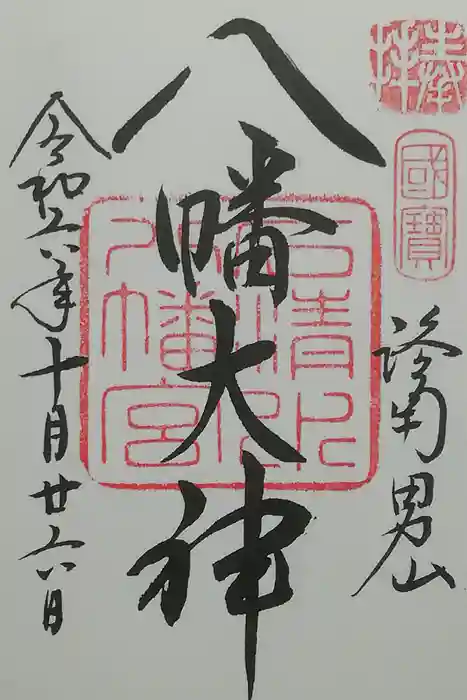 奉拝
國寶
洛南男山
八幡大神
石清水
八幡宮
令和六年十月廿六日